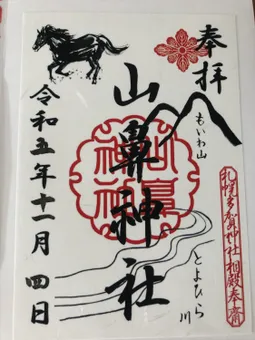 奉拝
もいわ山
札幌多賀神社相殿奉斎
山鼻神社
とよひら川
山鼻神社
令和五年十一月四日